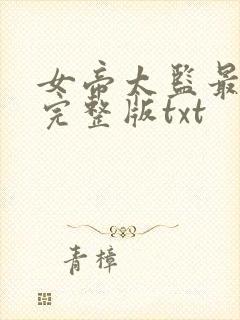 女帝大监最
完整版txt
青樟